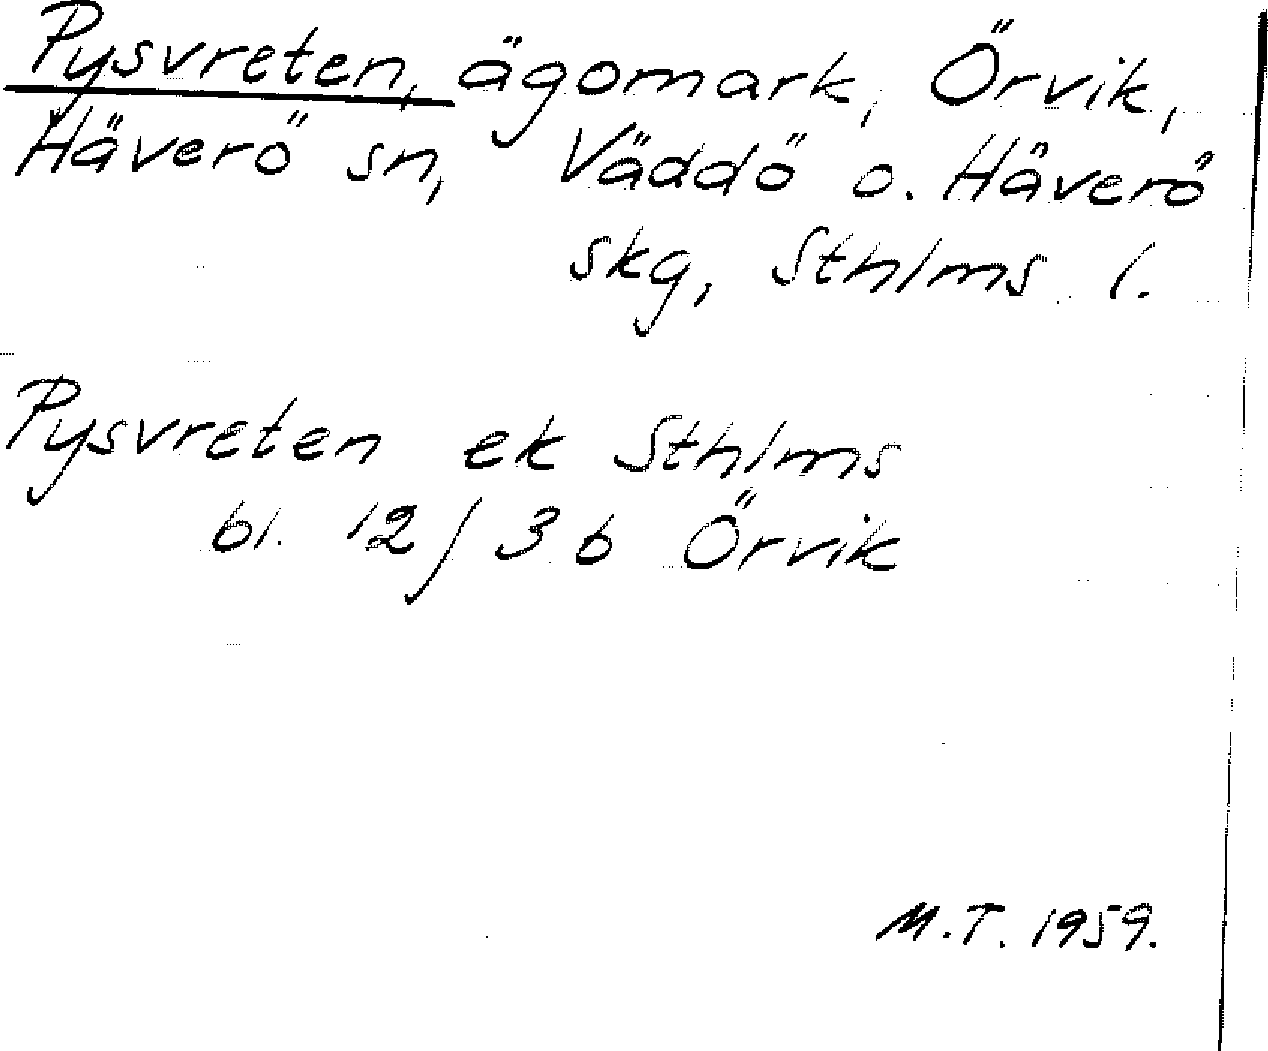 Pysvreten, ägomark, Örvik,
Häverö sn, Väddö o. Häverö
skg, Sthlms l.
Pysvreten ek Sthlms
bl. 12/3b Örvik
M.T. 1959.